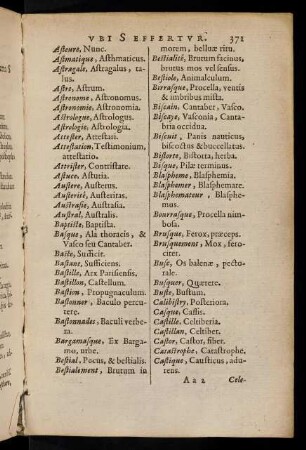 VBI S EFFERTVR. 371
Asteure, Nunc.
Astmatique, Asthmaticus.
Astragale, Astragalus, ta-
lus.
Astre, Astrum.
Astronome, Astronomus.
Astronomie, Astronomia.
Astrologue, Astrologus.
Astrologie, Astrologia.
Attester, Attestari.
Attestation, Testimonium,
attestatio.
Attrister, Contristare.
Astuce, Astutia.
Austere, Austerus.
Austerité, Austeritas.
Australie, Australia.
Austral, Australis.
Baptiste, Baptista.
Basque, Ala thoracis, &
Vasco seu Cantaber.
Baste, Sufficit.
Bastant, Sufficiens.
Bastille, Arx Parisiensis.
Bastillon, Castellum.
Bastion, Propugnaculum.
Bastonner, Baculo percu-
tere.
Bastonnades, Baculi verbe-
ra.
Bargamasque, Ex Barga-
mo, urbe.
Bestial, Pocus, & bestialis.
Bestialement, Brutum in
morem, belluæ ritu.
Bestialité, Brutum facinus,
brutus mos vel sensus.
Bestiole, Animalculum.
Bourasque, Procella, ventis
& imbribus mista.
Biscain, Cantaber, Vasco.
Biscaye, Vasconia, Canta-
bria occidua.
Biscuit, Panis nauticus,
biscoctus & buccellatus.
Bistorte, Bistorta, herba.
Bisque, Pilæ terminus.
Blaspheme, Blasphemia.
Blasphemer, Blasphemare.
Blasphemateur, Blasphe-
mus.
Bourrasque, Procella nimbo-
sa.
Brusque, Ferox, præceps.
Brusquement, Mox, fero-
citer.
Busc, Os balenæ, pecto-
rale.
Busquer, Quærere.
Buste, Bustum.
Calibistry, Posteriora.
Casque, Cassis.
Castille, Celtiberia.
Castillan, Celtiber.
Castor, Castor, fiber.
Catastrophe, Catastrophe.
Castique, Causticus, adu-
rens.
Aaa Cele-